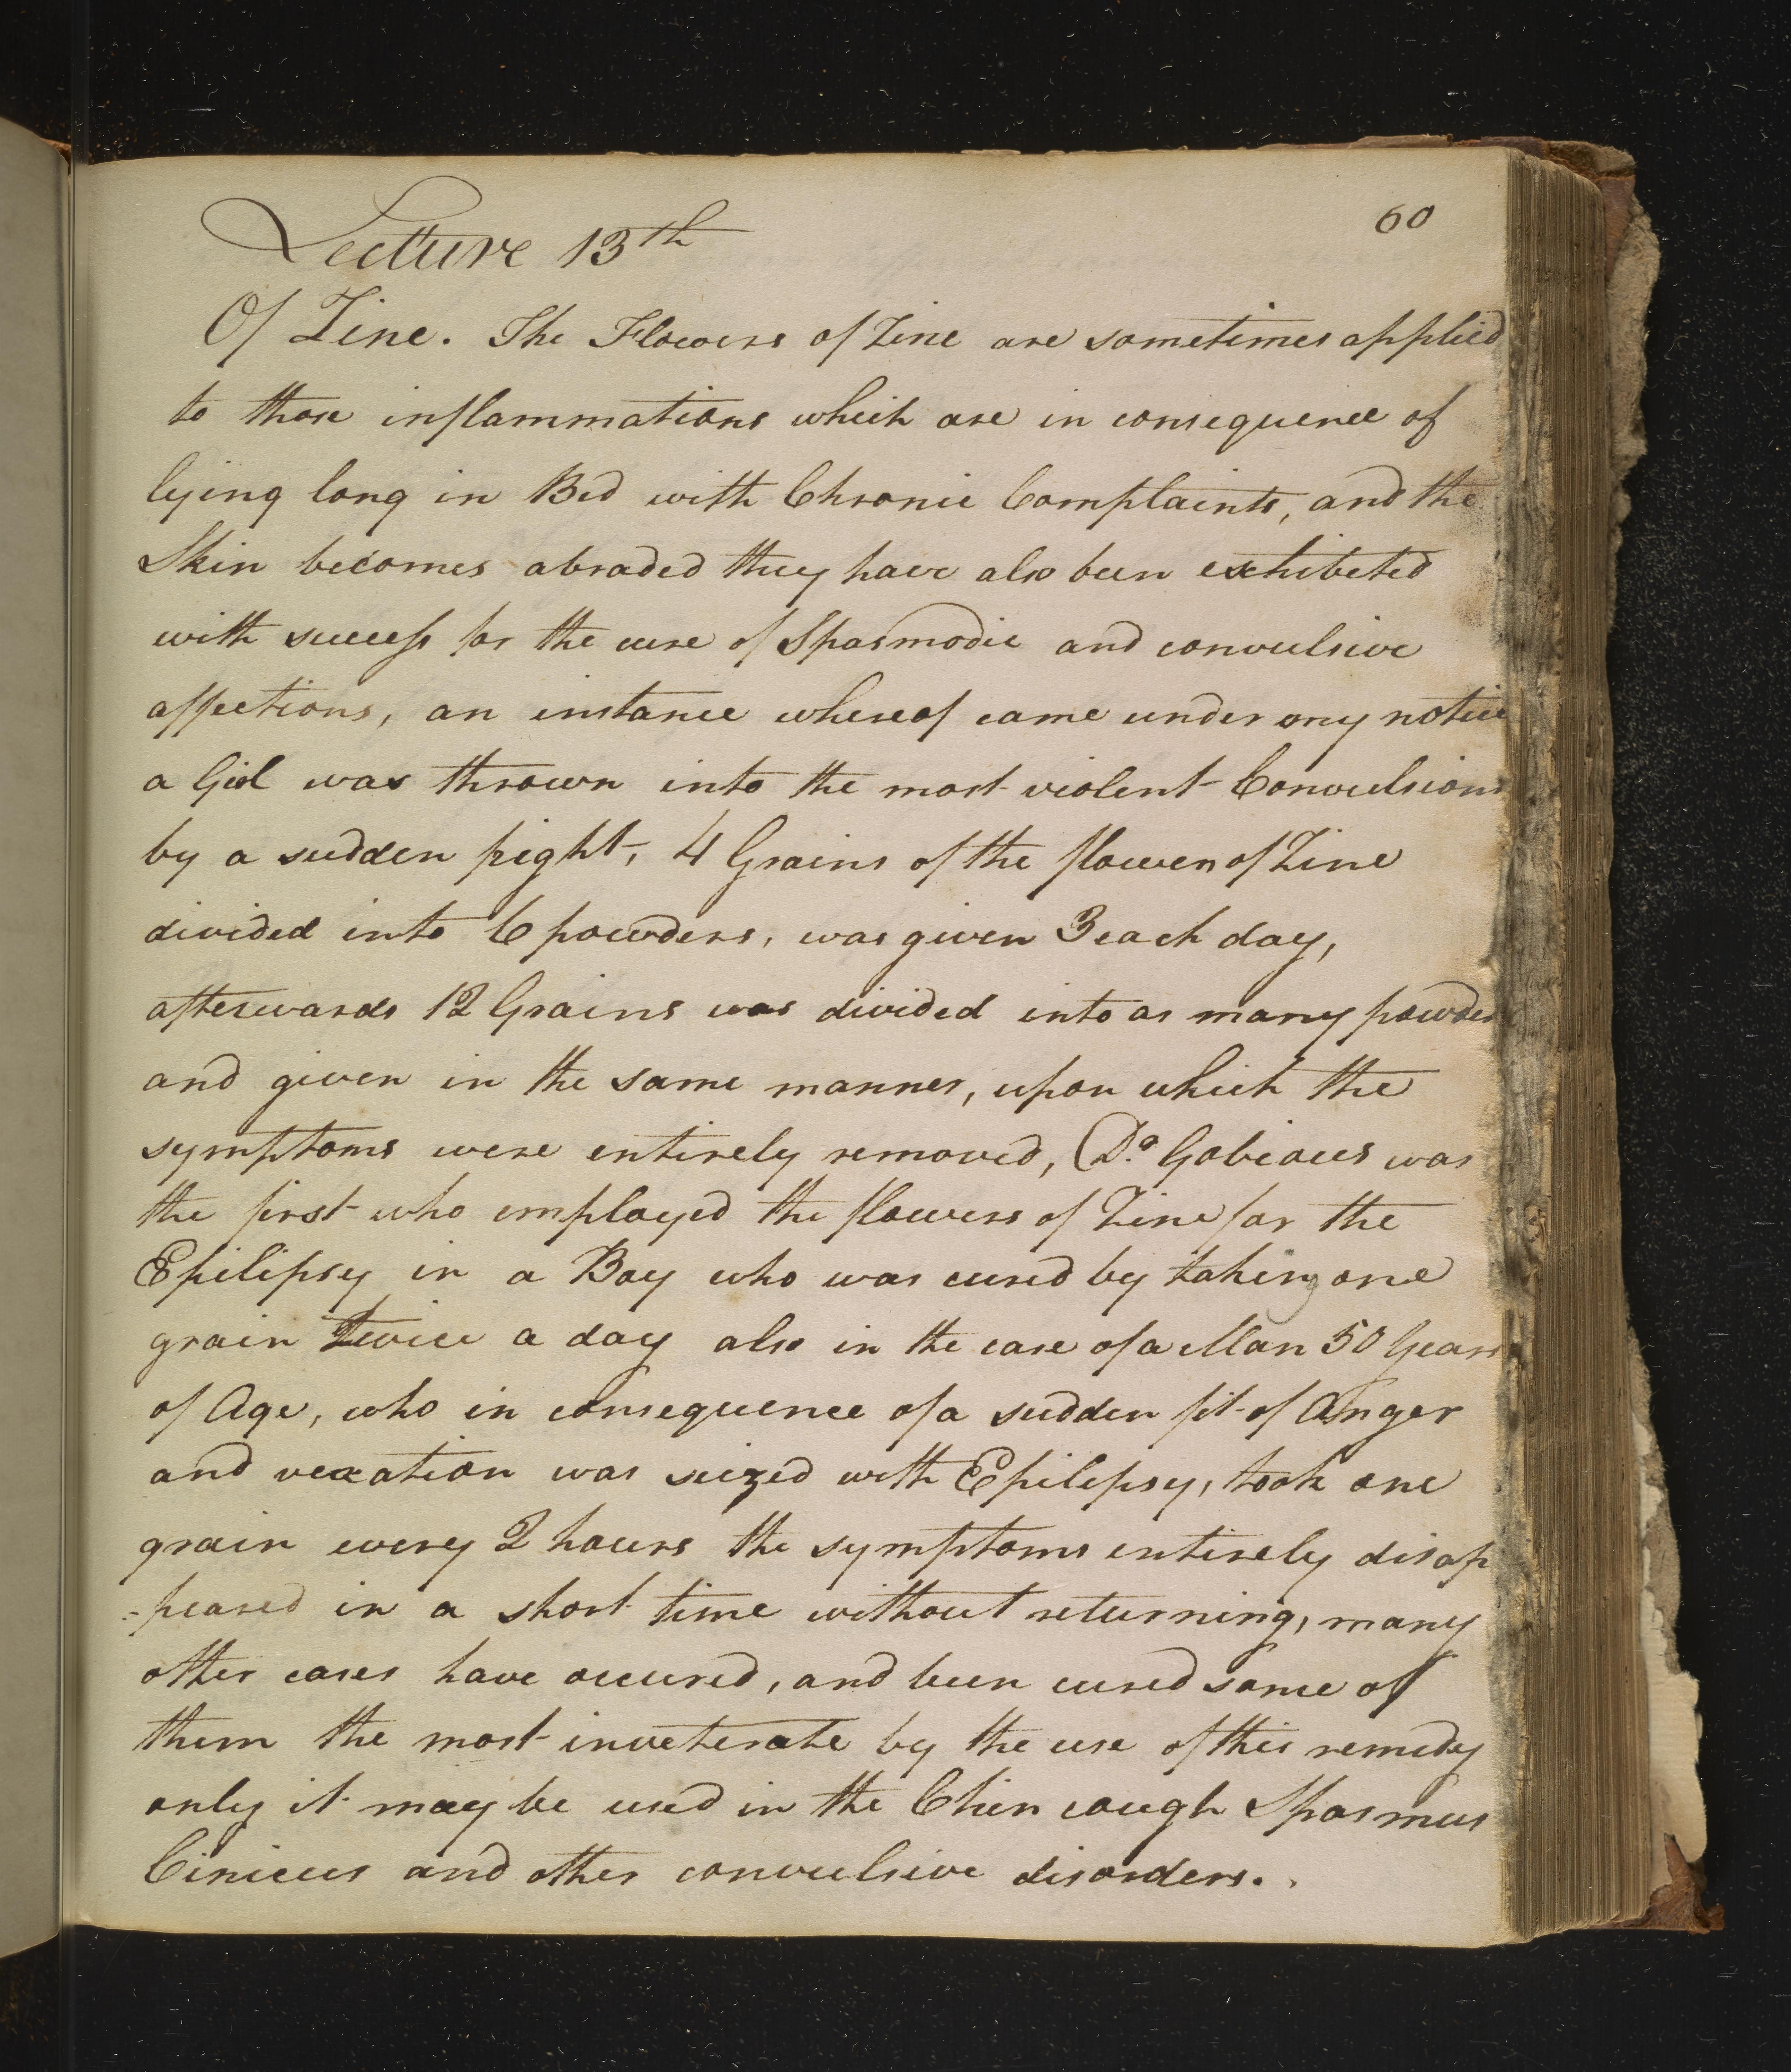 60
Lecture 13th
Of Zinc. The Flowers of Zinc are sometimes applied
to those inflammations which are in consequence of
lying long in Bed with Chronic Complaints, and the
Skin becomes abraded they have also been exhibeted
with success for the cure of Spasmodic and convulsive
affections, an instance whereof came under my notice
a Girl was thrown into the most violent Convulsions
by a sudden fright, 4 Grains of the flowers of Zinc
divided into 6 powders, was given 3 each day,
afterwards 12 Grains was divided into as many powders
and given in the same manner, upon which the
symptoms were entirely removed, Dr. Gobious was
the first who employed the flowers of Zinc for the
Epilipsy in a Boy who was cured by taking one
grain twice a day also in the case of a Man 50 Years
of Age, who in consequence of a sudden fit of Anger
and vexation was siezed with Epilipsy, took one
grain every 2 hours the symptoms entirely disap
-peared in a short time without returning, many
other cases have occured, and been cured some of
them the most inveterate by the use of this remedy
only it may be used in the Chin cough Spasmus
Cinicus and other convulsive disorders.